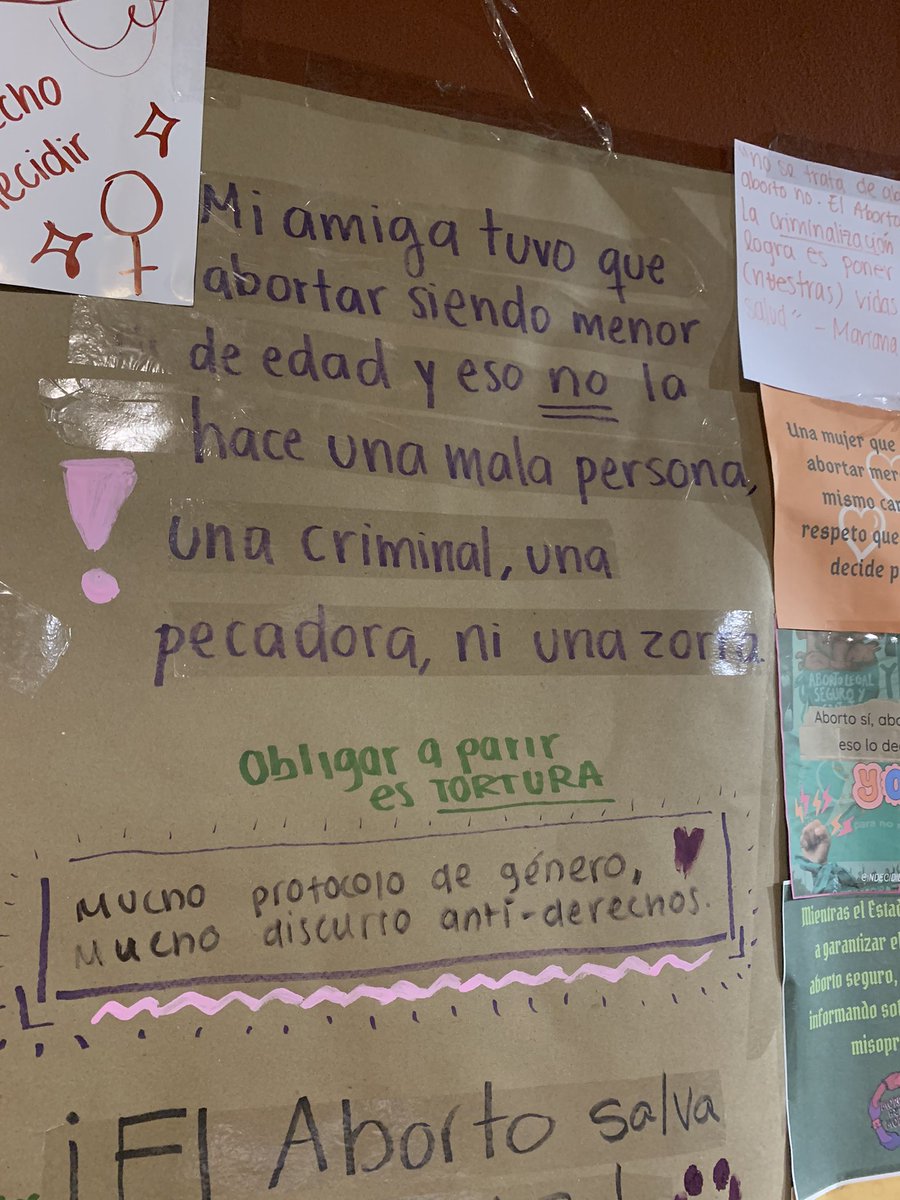 Mi amiga tuvo que
abortar siendo menor
de edad y eso no la
hace una mala persona,
una criminal, una
pecadora, ni una zorra.
Obligar a parir
es TORTURA
Mucho protocolo de género,
Mucho discurro anti-derechos.
¡El Aborto salva
cho
decidir
"no se trata de
aborto no. El
la criminalización
logra es poner
(nuestras) vidas
salud" - Mariana
Una mujer que
abortar
mismo
respeto que
decide
ABORTO LEGAL
SEGURO Y
Aborto sí,
eso lo
para no
Mientras el
a garantizar el
aborto seguro,
informando